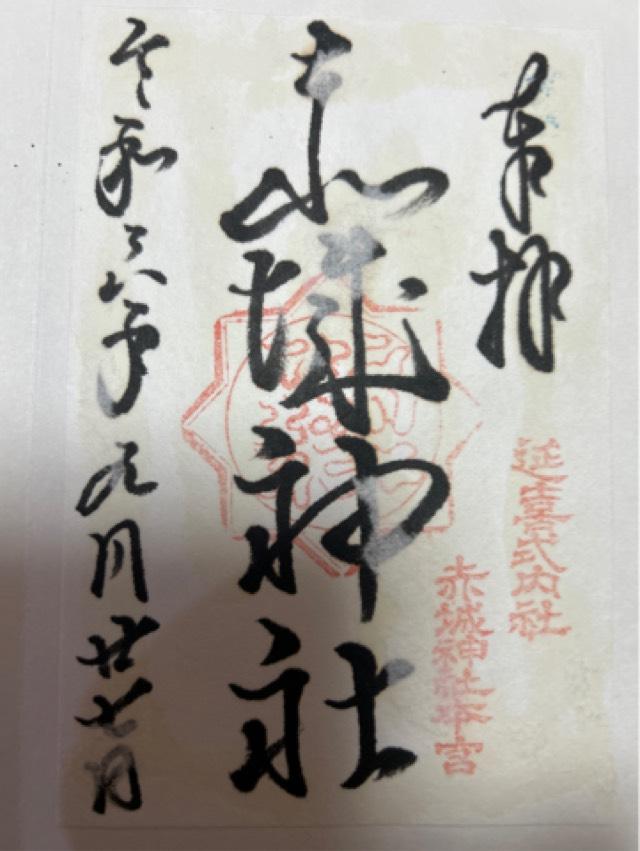 奉拝
延喜式内社
赤城神社本宮
赤城神社
令和六年九月廿七日